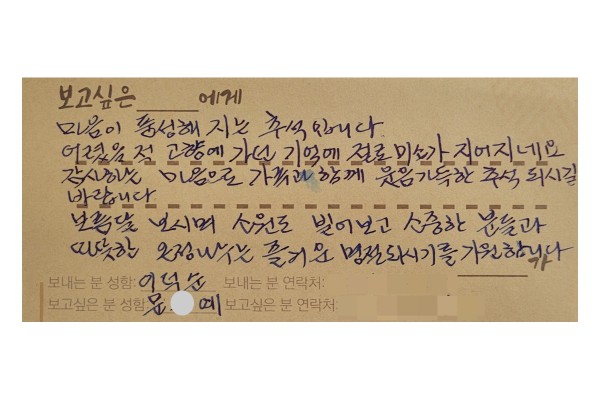 보고싶은 ______에게
마음이 풍성해 지는 추석입니다.
어렸을적 고향에 가던 기억에 절로 미소가 지어지네요
감사하는 마음으로 가족과 함께 웃음가득한 추석 되시길
바랍니다
보름달 보시며 소원도 빌어보고 소중한 분들과
따뜻한 온정나누는 즐거운 명절되시기를 기원합니다
가
보내는 분 성함: 이덕순 보내는 분 연락처:
보고싶은 분 성함: 문 예 보고싶은 분 연락처: